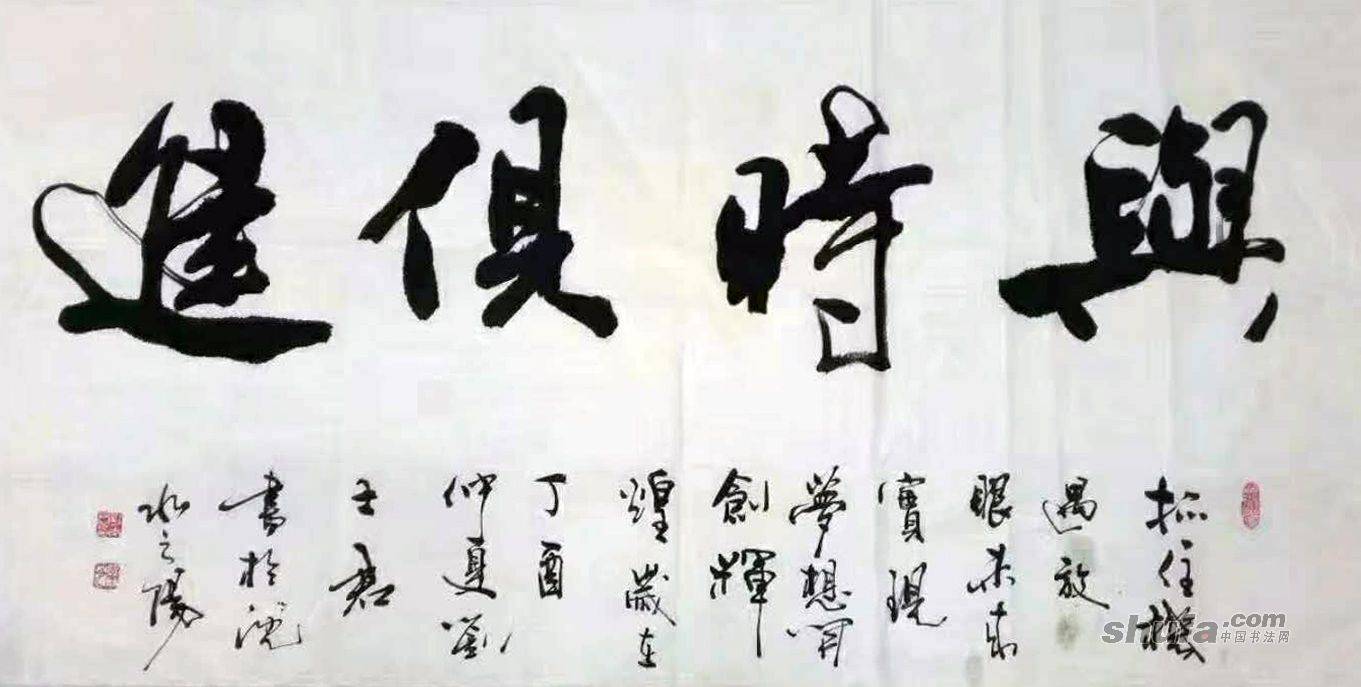 與時俱進
抓住機
遇放
眼未來
實現
夢想開
創輝
煌歲在
丁酉
仲夏劉
書於沅
水之陽
shufa.com
中国书法网